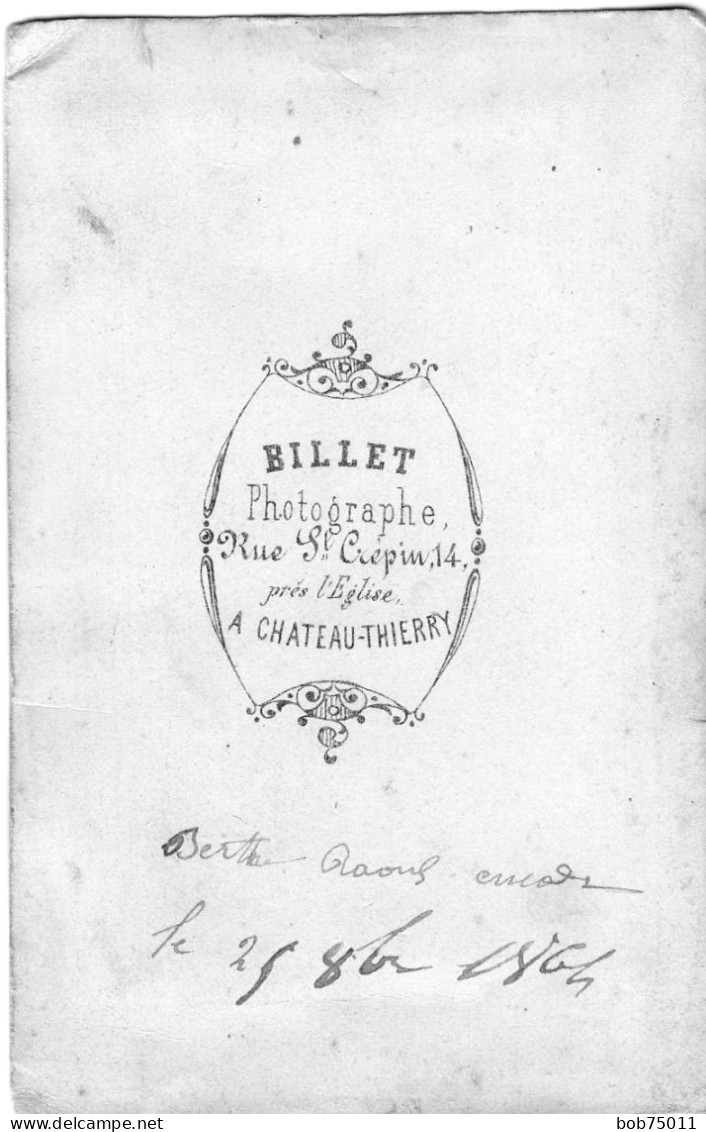 BILLET
Photographe,
Rue St. Crépin, 14,
prés l'Eglise,
A CHATEAU-THIERRY
Berthe Raoul
le 25 8bre 1864
delcampe.net
bob75011